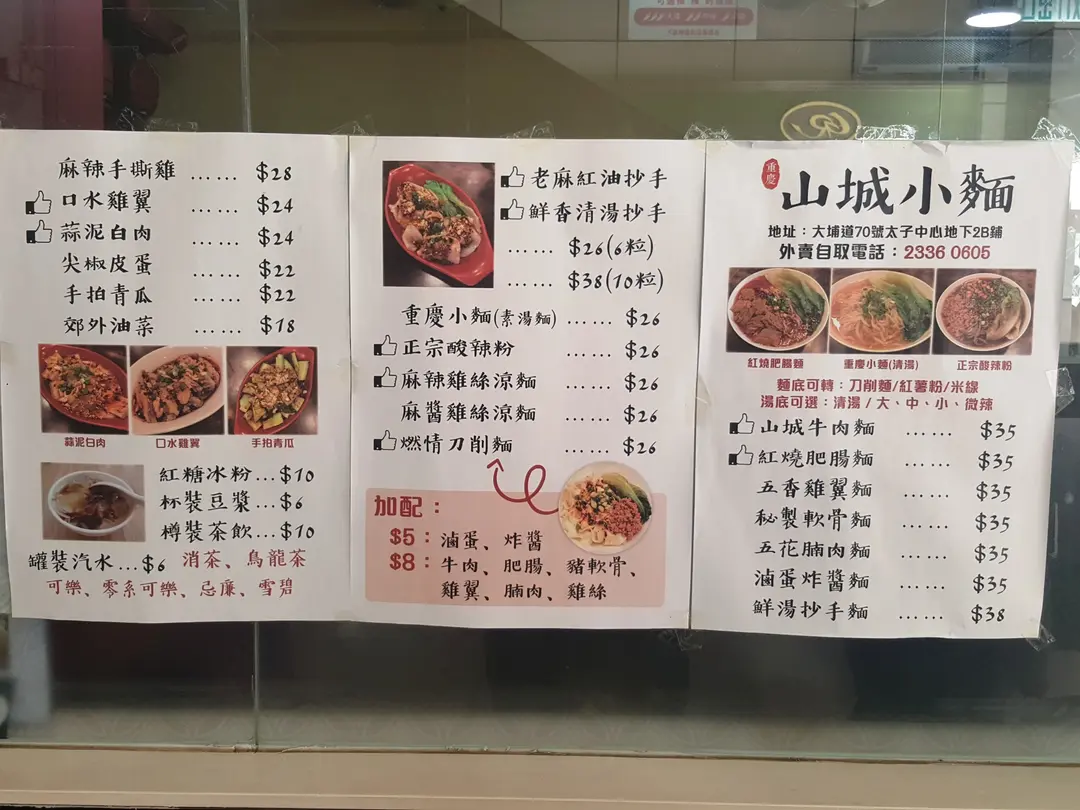 麻辣手撕雞 …… $28
口水雞翼 …… $24
蒜泥白肉 …… $24
尖椒皮蛋 …… $22
手拍青瓜 …… $22
郊外油菜 …… $18
蒜泥白肉 口水雞翼 手拍青瓜
紅糖冰粉…$10
杯裝豆漿…$6
樽裝茶飲…$10
罐裝汽水…$6 消茶、烏龍茶
可樂、零系可樂、忌廉、雪碧
老麻紅油抄手
鮮香清湯抄手
…… $26(6粒)
…… $38(10粒)
重慶小麵(素湯麵) …… $26
正宗酸辣粉 …… $26
麻辣雞絲涼麵 …… $26
麻醬雞絲涼麵 …… $26
燃情刀削麵 …… $26
加配：
$5：滷蛋、炸醬
$8：牛肉、肥腸、豬軟骨、
雞翼、腩肉、雞絲
重慶
山城小麵
地址：大埔道70號太子中心地下2B鋪
外賣自取電話：2336 0605
紅燒肥腸麵 重慶小麵(清湯) 正宗酸辣粉
麵底可轉：刀削麵/紅薯粉/米線
湯底可選：清湯/大、中、小、微辣
山城牛肉麵 …… $35
紅燒肥腸麵 …… $35
五香雞翼麵 …… $35
秘製軟骨麵 …… $35
五花腩肉麵 …… $35
滷蛋炸醬麵 …… $35
鮮湯抄手麵 …… $38